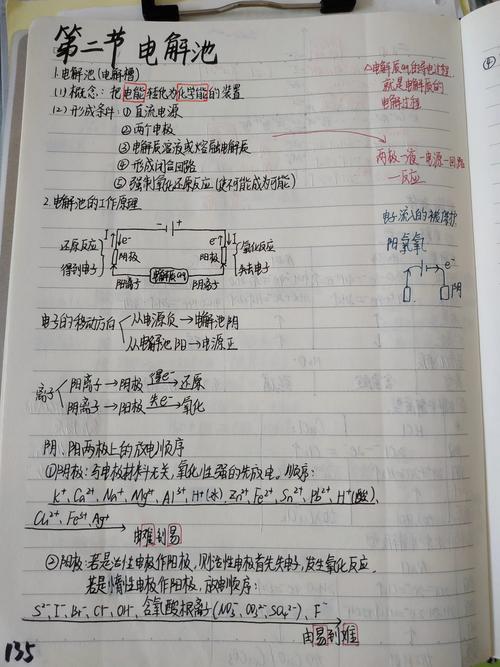 第二节 电解池
1.电解池(电解槽)
(1)概念:把电能转化为化学能的装置
(2)形成条件:①直流电源
②两个电极
③电解质溶液或熔融电解质
④形成闭合回路
⑤强制氧化还原反应(使不可能成为可能)
△电解质的导电过程
就是电解质的
电解过程
两极一液一电源一回路
一反应
2.电解池的工作原理
电子流入的被保护
阳氯氧
e⁻
阴
- +
I e⁻ e⁻ I
还原反应
得到电子
阴极 阳极
氧化反应
失去电子
阳离子 阴离子
电子的移动方向
从电源负→电解池阴
从电解池阳→电源正
离子
阳离子→阴极 得e⁻→还原
阴离子→阳极 失e⁻→氧化
阴、阳两极上的放电顺序
①阴极:与电极材料无关,氧化性强的先放电。顺序:
K⁺、Ca²⁺、Na⁺、Mg²⁺、Al³⁺、H⁺(水)、Zn²⁺、Fe²⁺、Sn²⁺、Pb²⁺、H⁺(酸)、
Cu²⁺、Fe³⁺、Ag⁺
由难到易
②阳极:若是活性电极作阳极,则活性电极首先失电子,发生氧化反应.
若是惰性电极作阳极,放电顺序:
S²⁻、I⁻、Br⁻、Cl⁻、OH⁻、含氧酸根离子(NO₃⁻、CO₃²⁻、SO₄²⁻)、F⁻
由易到难
135